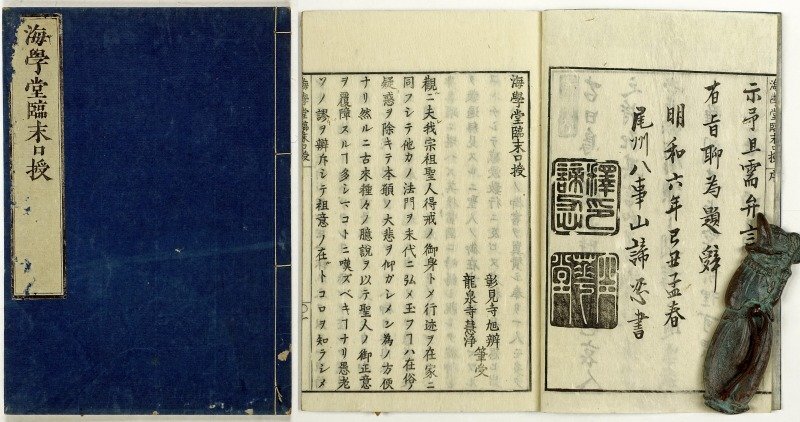 海學堂臨末口授
海學堂臨末口授序
示予且需弁言
有旨聊為題辭
明和六年己丑孟春
尾州八事山諦忍書
海學堂臨末口授
彰見寺旭辨
龍泉寺慧浄
筆受
觀ニ夫我宗祖聖人得戒ノ御身トメ行迹ヲ在家ニ
同フシテ他力ノ法門ヲ末代ニ弘メ玉フヿハ在俗ノ
疑惑ヲ除キテ本願ノ大悲ヲ仰ガシメン為ノ方便
ナリ然ルニ古來種々ノ臆說ヲ以テ聖人ノ御正意
ヲ覆障スルヿ多シマコトニ嘆ズベキヿナリ愚老
ソノ謬ヲ辨斥シテ祖意ノ在トコロヲ知ラシメ
海學堂臨末口授